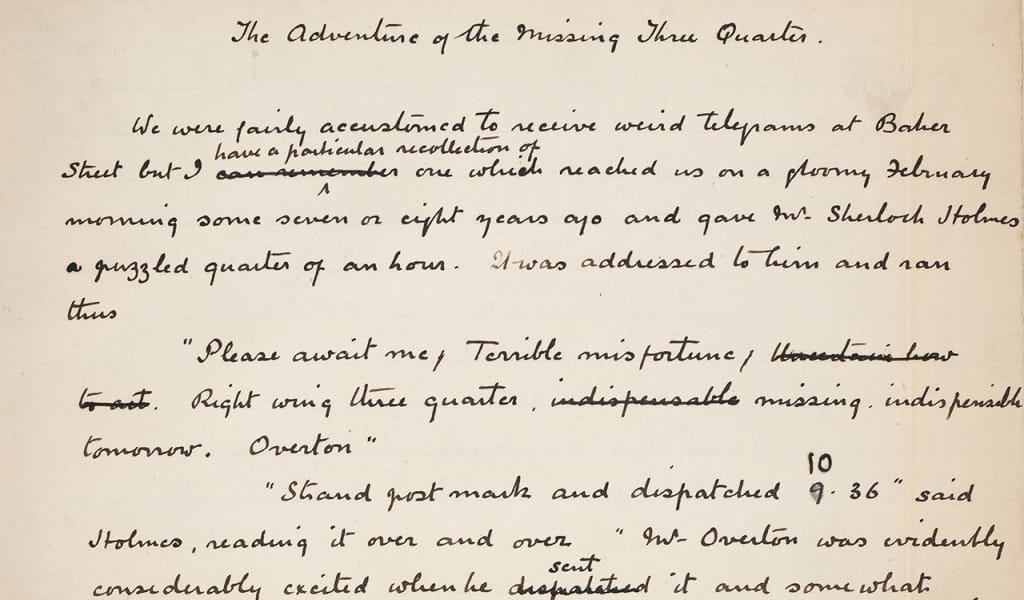 The Adventure of the Missing Three Quarter.
We were fairly accustomed to receive weird telegrams at Baker
have a particular recollection of
Street but I can remember one which reached us on a gloomy February
morning some seven or eight years ago and gave Mr. Sherlock Holmes
a puzzled quarter of an hour. It was addressed to him and ran
thus
"Please await me, Terrible misfortune, Uncertain how
to act. Right wing three quarter, indispensable missing. indispensible
tomorrow. Overton"
10
"Strand post mark and dispatched 9.36" said
Holmes, reading it over and over. "Mr. Overton was evidently
sent
considerably excited when he despatched it and somewhat